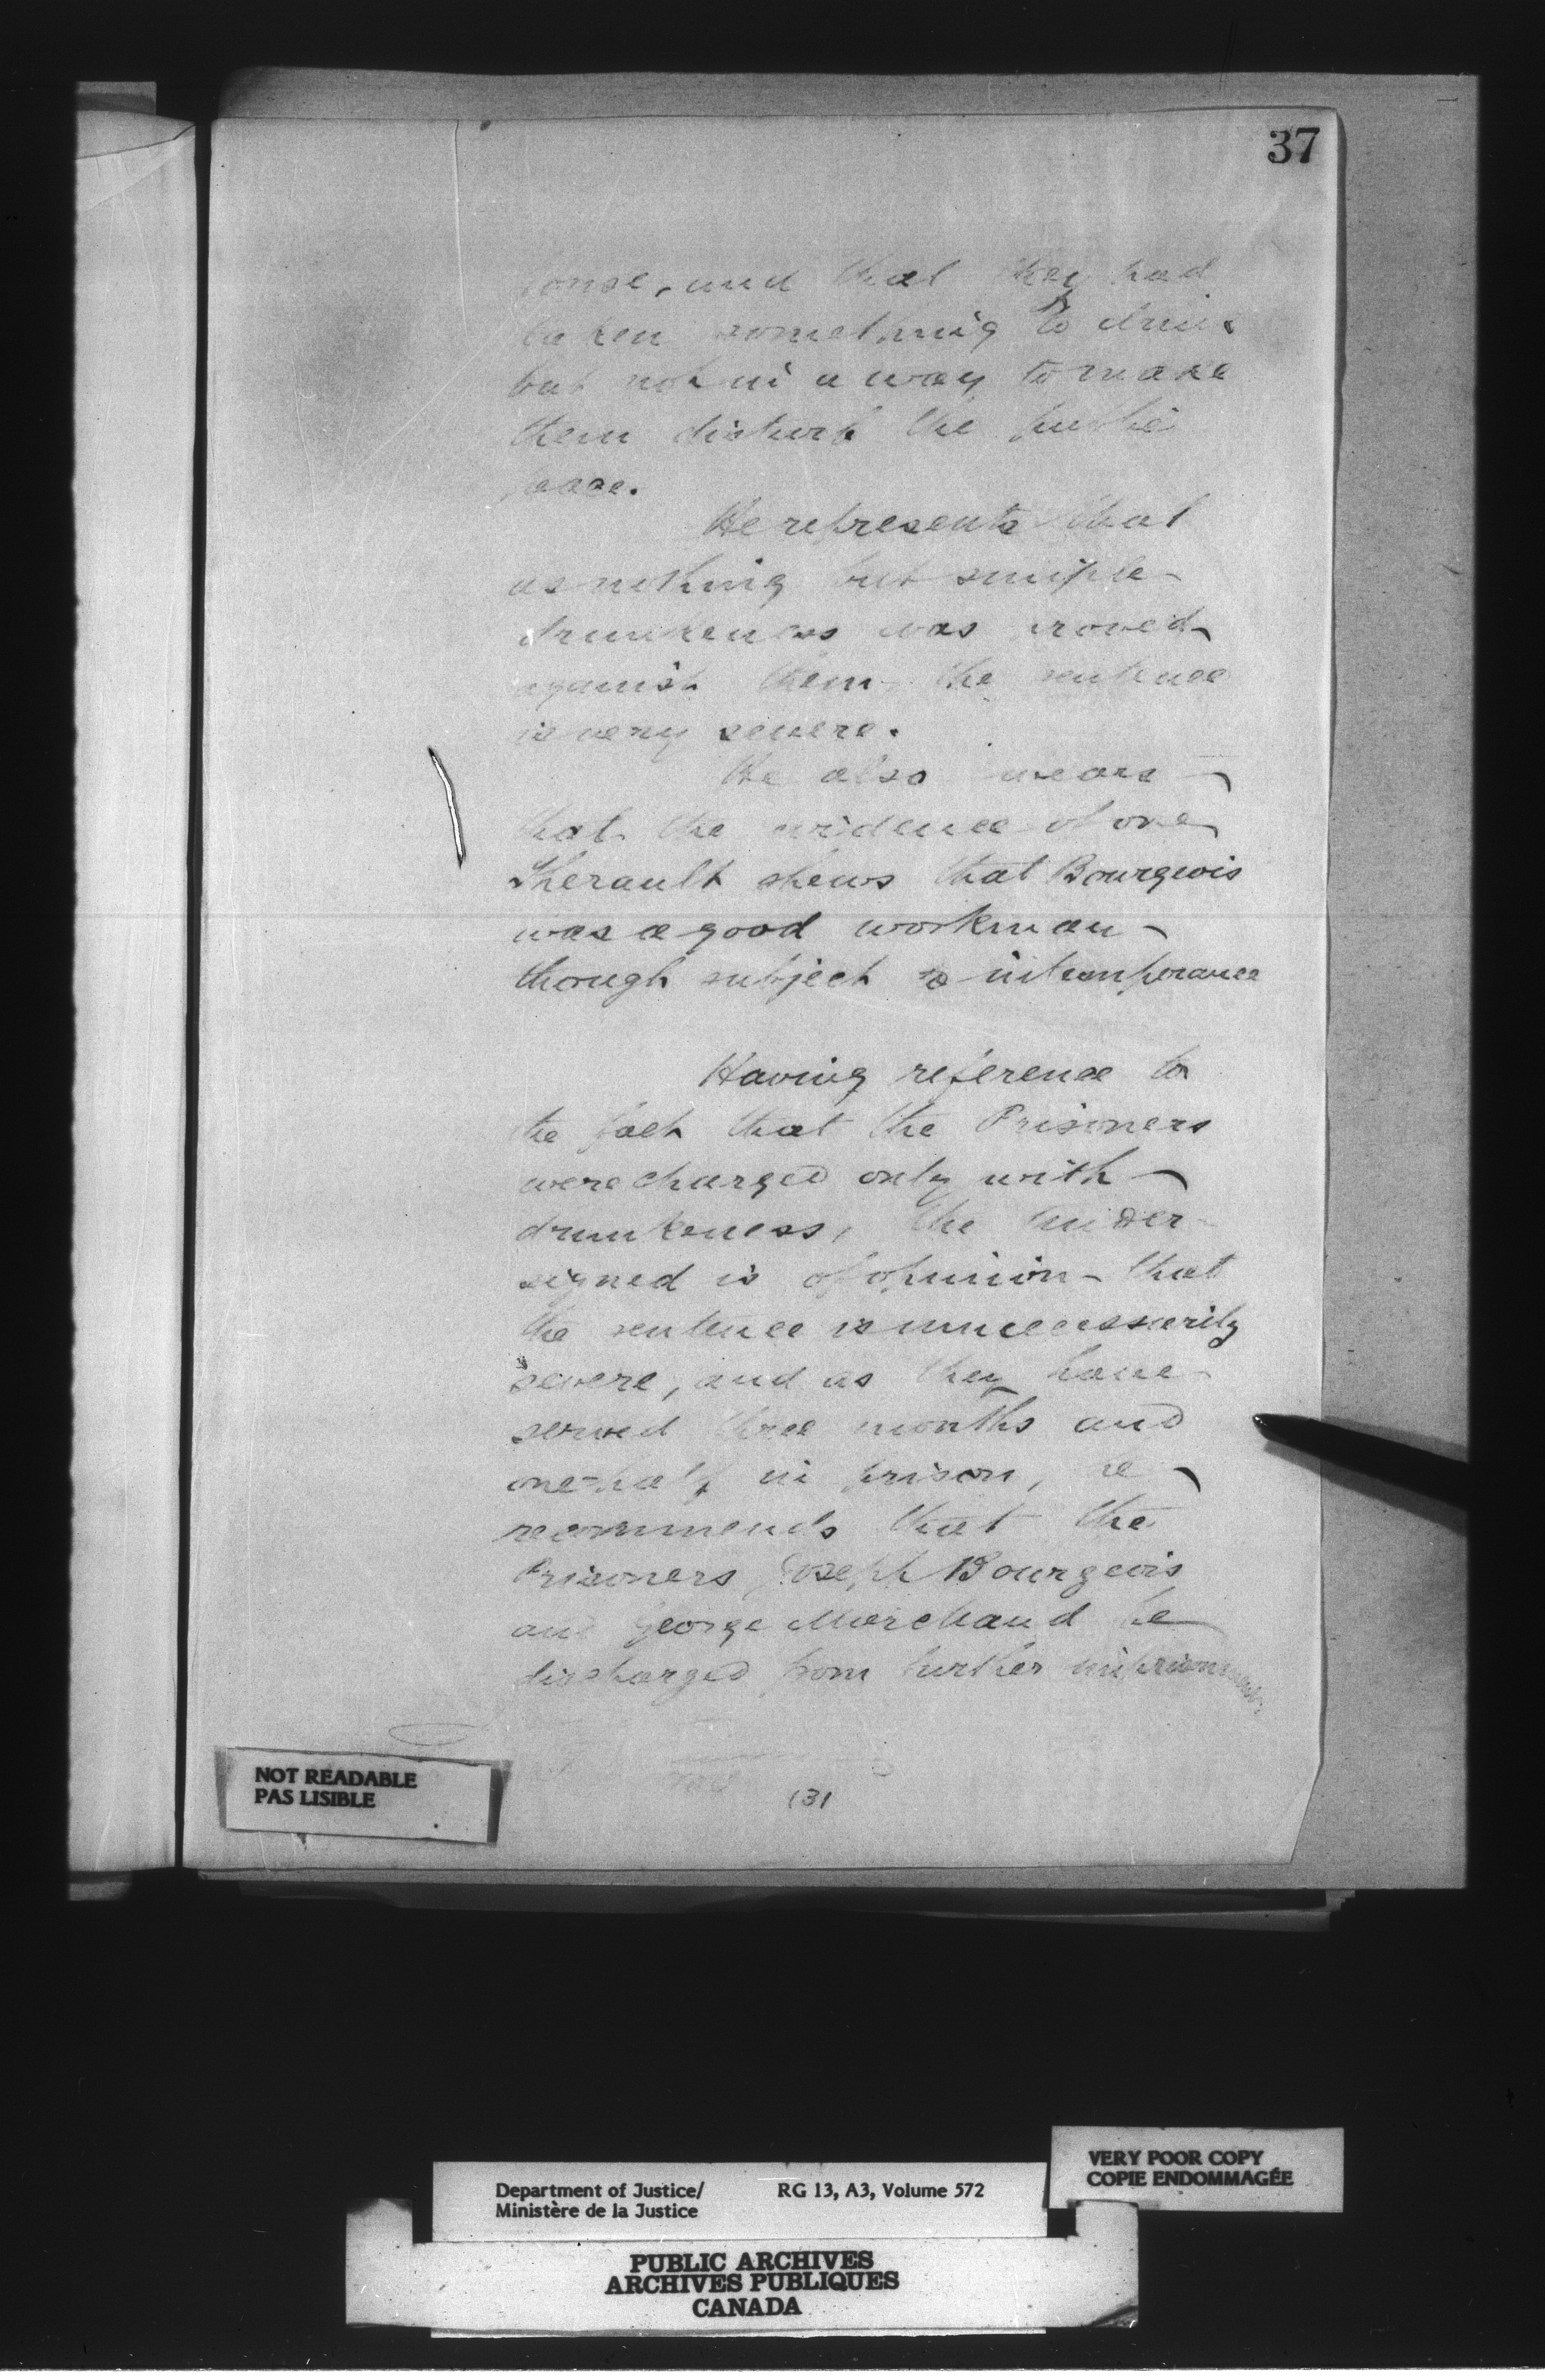 37
and that they had
taken something to drink
but not in a way to make
them disturb the public
peace.
He represents that
as nothing but simple
drunkenness was proved
against them, the sentence
is very severe.
He also
that the evidence of one
Therault shews that Bourgeois
was a good workman
though subject to intemperance
Having reference to
the fact that the Prisoners
were charged only with
drunkeness, the Under-
signed is of opinion that
the sentence is unnecessarily
severe, and as they have
served three months and
one-half in prison, he
recommends that the
Prisoners Joseph Bourgeois
and George Marchand be
discharged from further imprisonment
NOT READABLE
PAS LISIBLE
(3)
VERY POOR COPY
COPIE ENDOMMAGÉE
Department of Justice/ RG 13, A3, Volume 572
Ministère de la Justice
PUBLIC ARCHIVES
ARCHIVES PUBLIQUES
CANADA